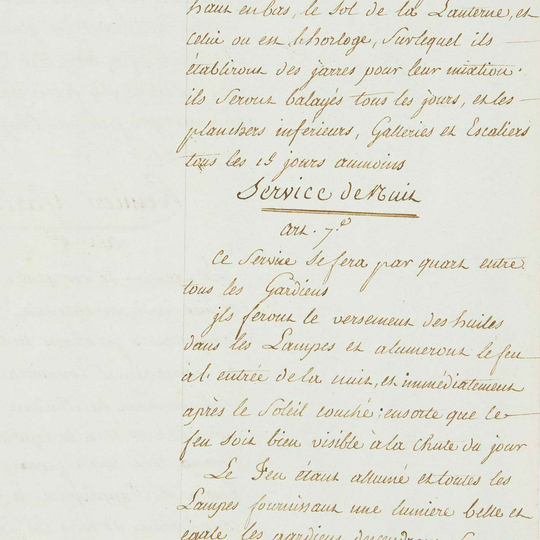 haut en bas, le sol de la Lanterne, et
celui ou est l'horloge, sur lequel ils
établiront des jarres pour leur
ils seront balayés tous les jours, et les
planchers inférieurs, Galleries et Escaliers
tous les 15 jours aumoins
Service de Nuit
art. 7.e
Ce Service se fera par quart entre
tous les Gardiens
jls feront le versement des huiles
dans les Lampes et alumeront le feu
a l'entrée de la nuit, et immédiatement
après le Soleil couché ; ensorte que le
feu soit bien visible à la chute du jour
Le Feu étant allumé et toutes les
Lampes fournissant une lumière belle et
égale les gardiens